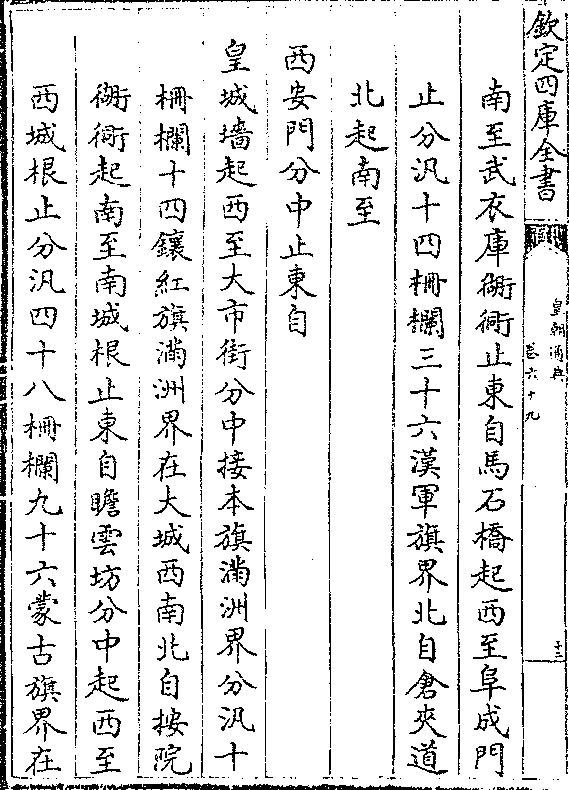 欽定四庫全書
皇朝通典
卷六十九
十三
南至武衣庫衚衕止東自馬石橋起西至阜成門
止分汛十四柵欄三十六漢軍旗界北自倉夾道
北起南至
西安門分中止東自
皇城墻起西至大市街分中接本旗滿洲界分汛十
柵欄十四鑲紅旗滿洲界在大城西南北自按院
衚衕起南至南城根止東自瞻雲坊分中起西至
西城根止分汛四十八柵欄九十六蒙古旗界在